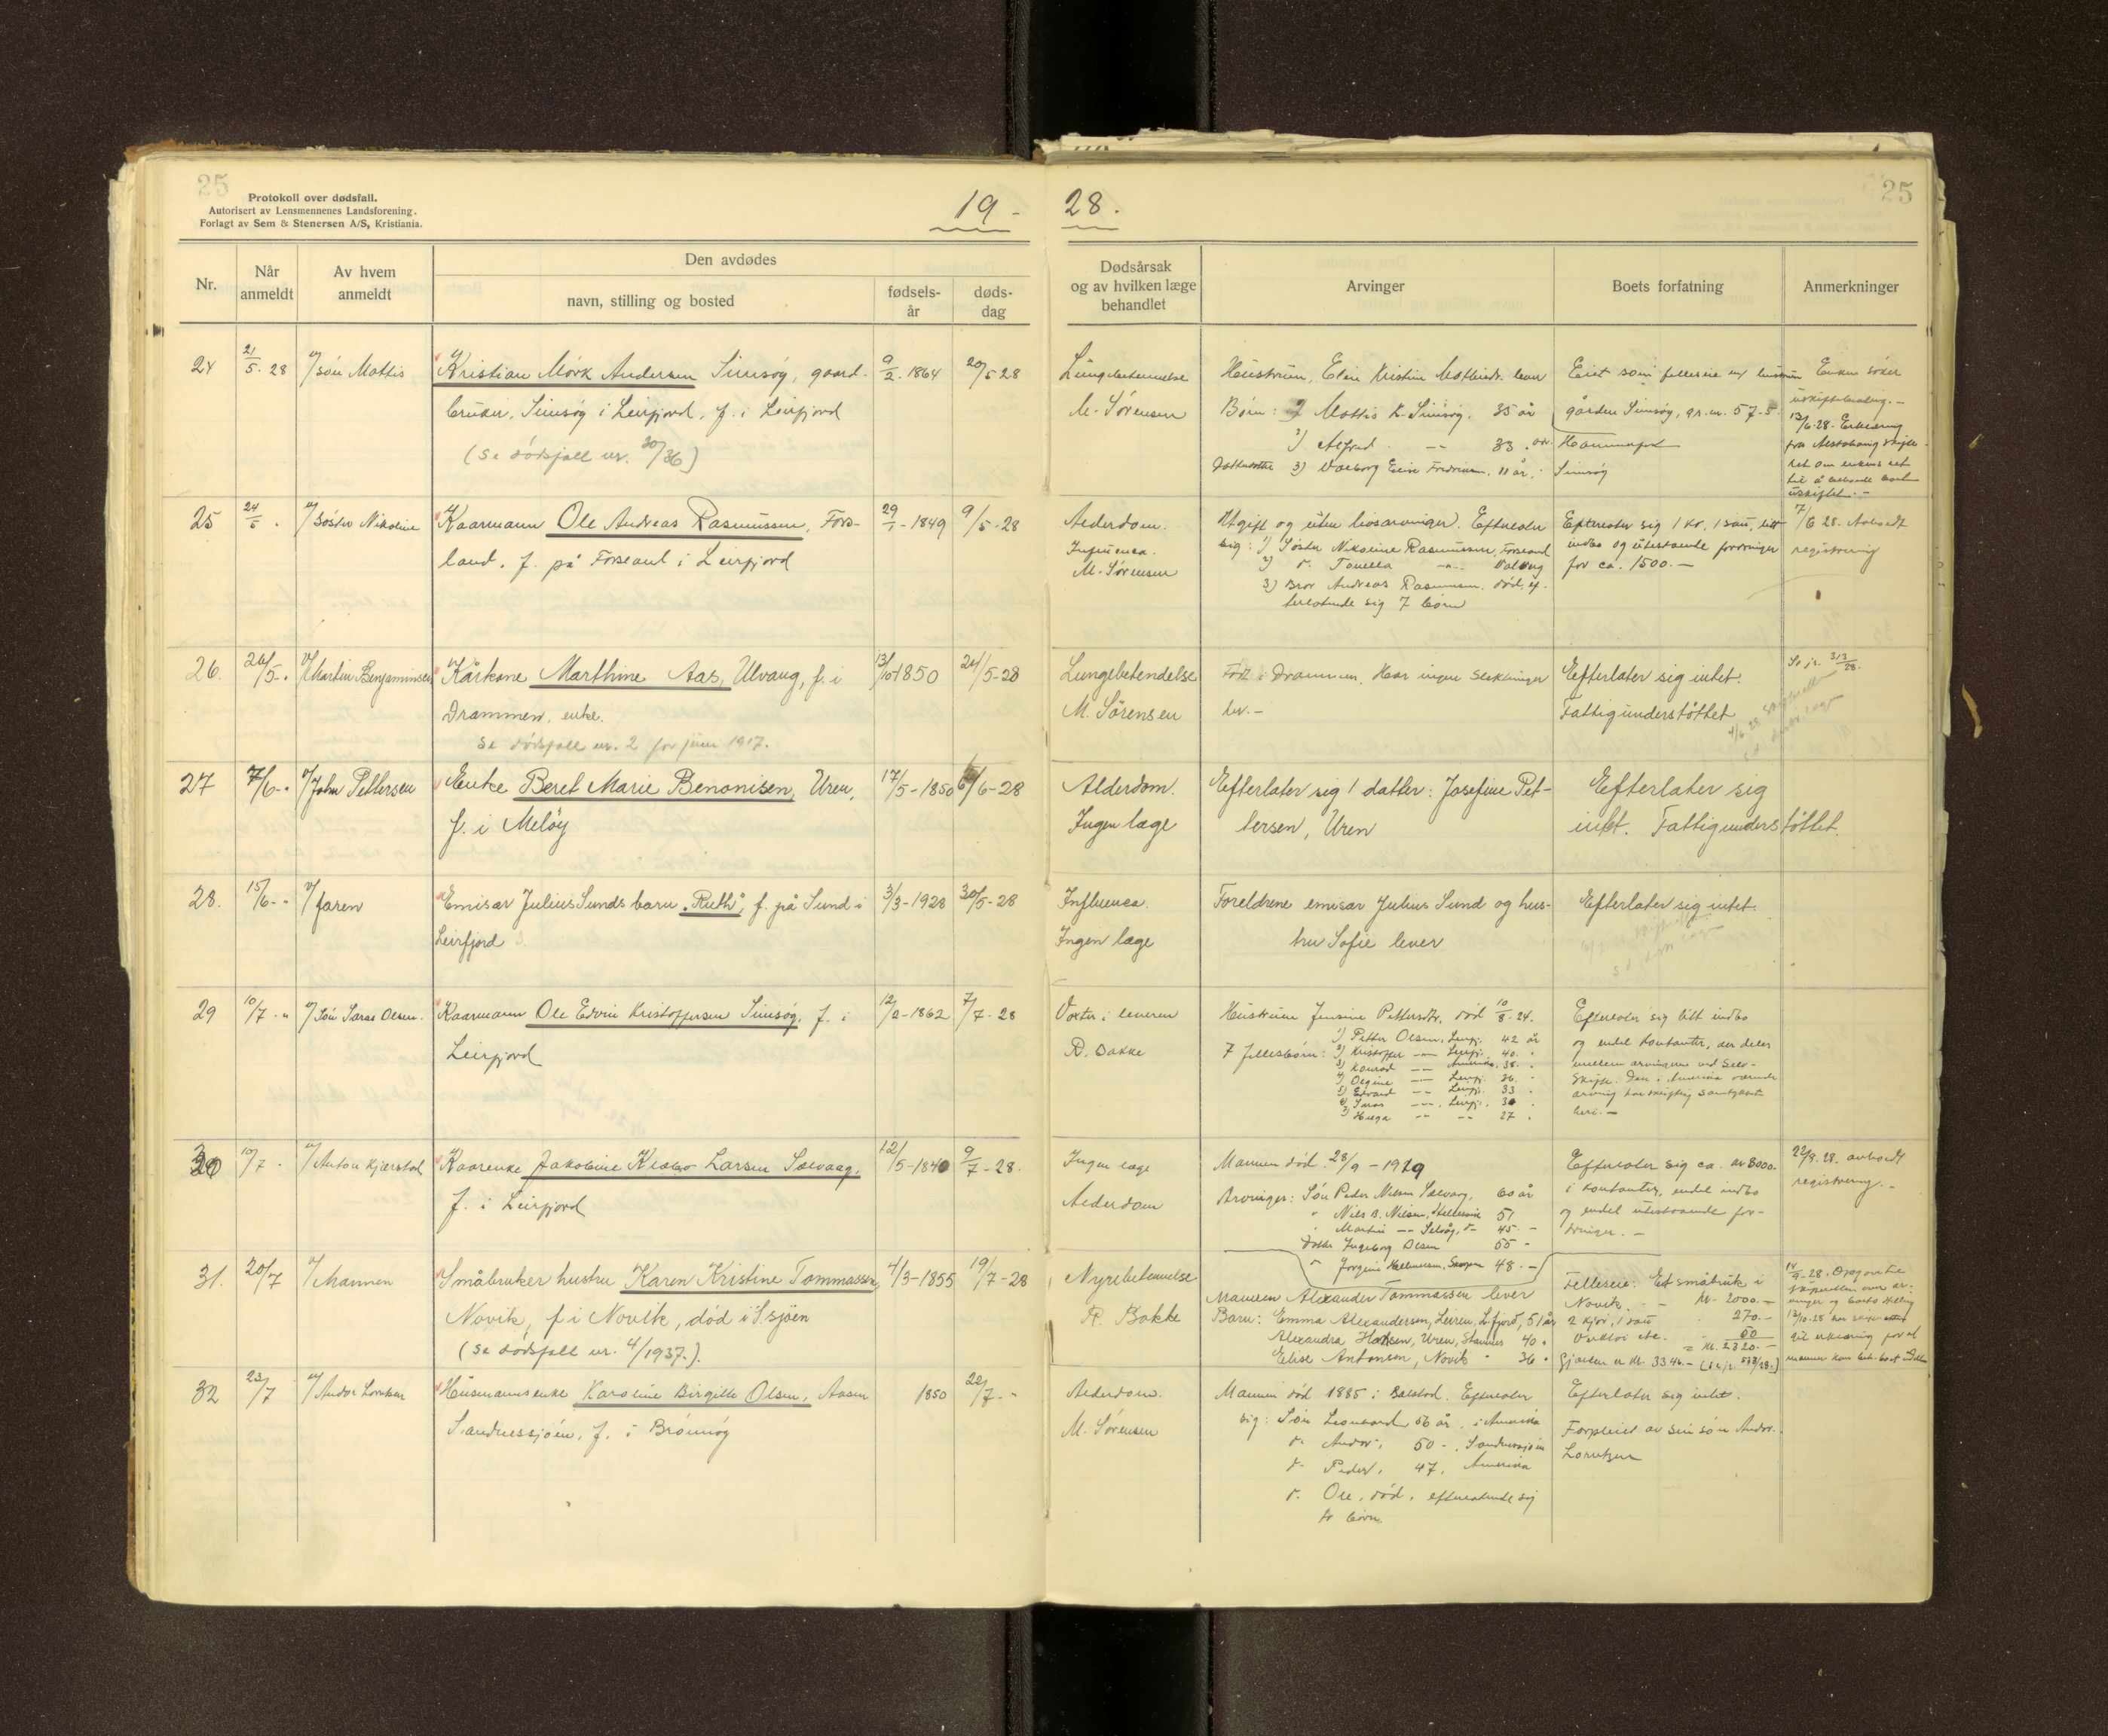 25
Protokoll over dødsfall.
Autorisert av Lensmennenes Landsforening.
Forlagt av Sem & Stenersen A/S, Kristiania.
19 - 28.
25
Nr.
Når anmeldt
Av hvem anmeldt
Den avdødes
navn, stilling og bosted
fødsels-
år
døds-
dag
Dødsårsak
og av hvilken læge
behandlet
Arvinger
Boets forfatning
Anmerkninger
24
21/5. 28
v/ søn Mattis
Kristian Mörk Andersen Simsøy, gaard-
bruker, Simsøy i Leirfjord, f. i Leirfjord
(Se dödsfall nr. 30/36)
9/2. 1864
20/5 28
Lungebetennelse
M. Sörensen
Hustruen, Elen Kristine lever
Børn: 1) Mattis K. Simsøy. 35 år
2) Alfred -"- 33
3) Valborg 11 år.
Eiet som felleseie m/ hustruen
gården Simsøy, gr.nr. 57-5
Simsøy
Enken søker
13/6-28. Erklæring
uskiftet. -
25
24/5 .
v/ söster Nikoline
Kaarmann Ole Andreas Rasmussen, Fors-
land, f. på Forsland i Leirfjord
29/1 - 1849
9/5 - 28
Alderdom.
Influensa.
M. Sörensen
Ugift og uten livsarvinger. Efterlater
sig: 1) Söster Nikoline Rasmussen, Forsland
2) d. Tonella -"-
3) Bror Andreas Rasmussen, död, ef-
terlatende sig 7 börn
Efterlater sig 1 ko, 1 sau, litt
indbo og utestaaende fordringer
for ca. 1500.-
7/6 28. Avholdt
registrering
26.
26/5 - "
v/ Martin Benjaminsen
Kårkone Marthine Aas, Ulvang, f. i
Drammen, enke.
Se dödsfall nr. 2 for juni 1917.
13/10 1850
24/5-28
Lungebetendelse
M. Sörensen
Född i Drammen. Har ingen slektninger
her. -
Efterlater sig intet.
Fattigunderstöttet
Se jr. 313/28.
27
7/6 - "
v/ John Pettersen
Enke Beret Marie Benonisen, Uren,
f. i Melöy
17/5 - 1850
6/6 - 28
Alderdom.
Ingen læge
Efterlater sig 1 datter: Josefine Pet-
tersen, Uren
Efterlater sig
intet. Fattigunderstöttet.
28.
15/6 - "
v/ faren
Emisær Julius Sunds barn "Ruth", f. på Sund i
Leirfjord
3/3 - 1928
30/5 - 28
Influensa.
Ingen læge
Foreldrene emisær Julius Sund og hus-
tru Sofie lever
Efterlater sig intet.
29
10/7 - "
v/ Sön Olsen.
Kaarmann Ole Edvin Kristoffersen Simsøy, f. i
Leirfjord
12/2 - 1862
7/7 - 28
Vokster i leveren
R. Bakke
Hustruen Jensine Pettersdtr. död 10/8 - 24.
7 fellesbörn: 1) Petter Olsen, Leirfj. 42 år
2) Kristoffer -"- Leirfj. 40. "
3) Konrad -"- Amerika. 38. "
4) Olgine -"- Leirfj. 36. "
5) Edvard -"- Leirfj. 33 "
6) -"- Leirfj. 30 "
7) Helga -"- -"- 27 "
Efterlater sig litt indbo
og endel kontanter, der deles
mellem arvingerne ved selv-
skifte. Den i Amerika værende
arving har skriftlig samtykket
heri. -
30
10/7 .
v/ Anton Kjærstad
Kaarenke Jakobine Klæbo Larsen Sælvaag,
f. i Leirfjord
12/5 - 1840
9/7 - 28.
Ingen læge
Alderdom
Mannen död 28/9 - 1919
Arvinger: Sön Peder Nielsen Sælvaag, 60 år
" Nils B. Nilsen, 51
" Martin -"- Selvåg, 45. -
Datter Ingeborg Olsen 55 -
" Jorgine 48. -
Efterlater sig ca. kr 8000.-
i kontanter, endel indbo
og endel utestaaende for-
dringer. -
22/8. 28. avholdt
registrering. -
31.
20/7
v/ Mannen
Småbruker hustru Karen Kristine Tommassen,
Novik, f i Novik, död i S.sjöen
(Se dödsfall nr. 4/1937.).
4/3 - 1855
19/7 - 28
Nyrebetennelse
R. Bakke
Mannen Alexander Tommassen lever
Barn: Emma Alexandersen, Leiren, L.fjord, 51 år
Alexandra Hansen, Uren, Stamnes 40 "
Elise Antonsen, Novik " 36 "
Felleseie: Et småbruk i
Novik. - kr. 2000.-
2 kjør, 1 sau " 270.-
Verktöi etc. " 50
= kr. 2320.-
Gjelden er kr. 3346.-
32
23/7
v/ Andor Lorntsen
Husmannsenke Karoline Birgitte Olsen, Aasen
Sandnessjöen, f. i Brönnöy
1850
22/7 - "
Alderdom.
M. Sörensen
Mannen död 1885 i Balstad. Efterlater
sig: Sön Leonhard 56 år, i Amerika
d- Andor, 50 -, Sandnessjöen
d- Peder, 47, Amerika
d- Ole, död, efterlatende sig
to börn
Efterlater sig intet.
Forpleiet av sin sön Andor
Lorntzen